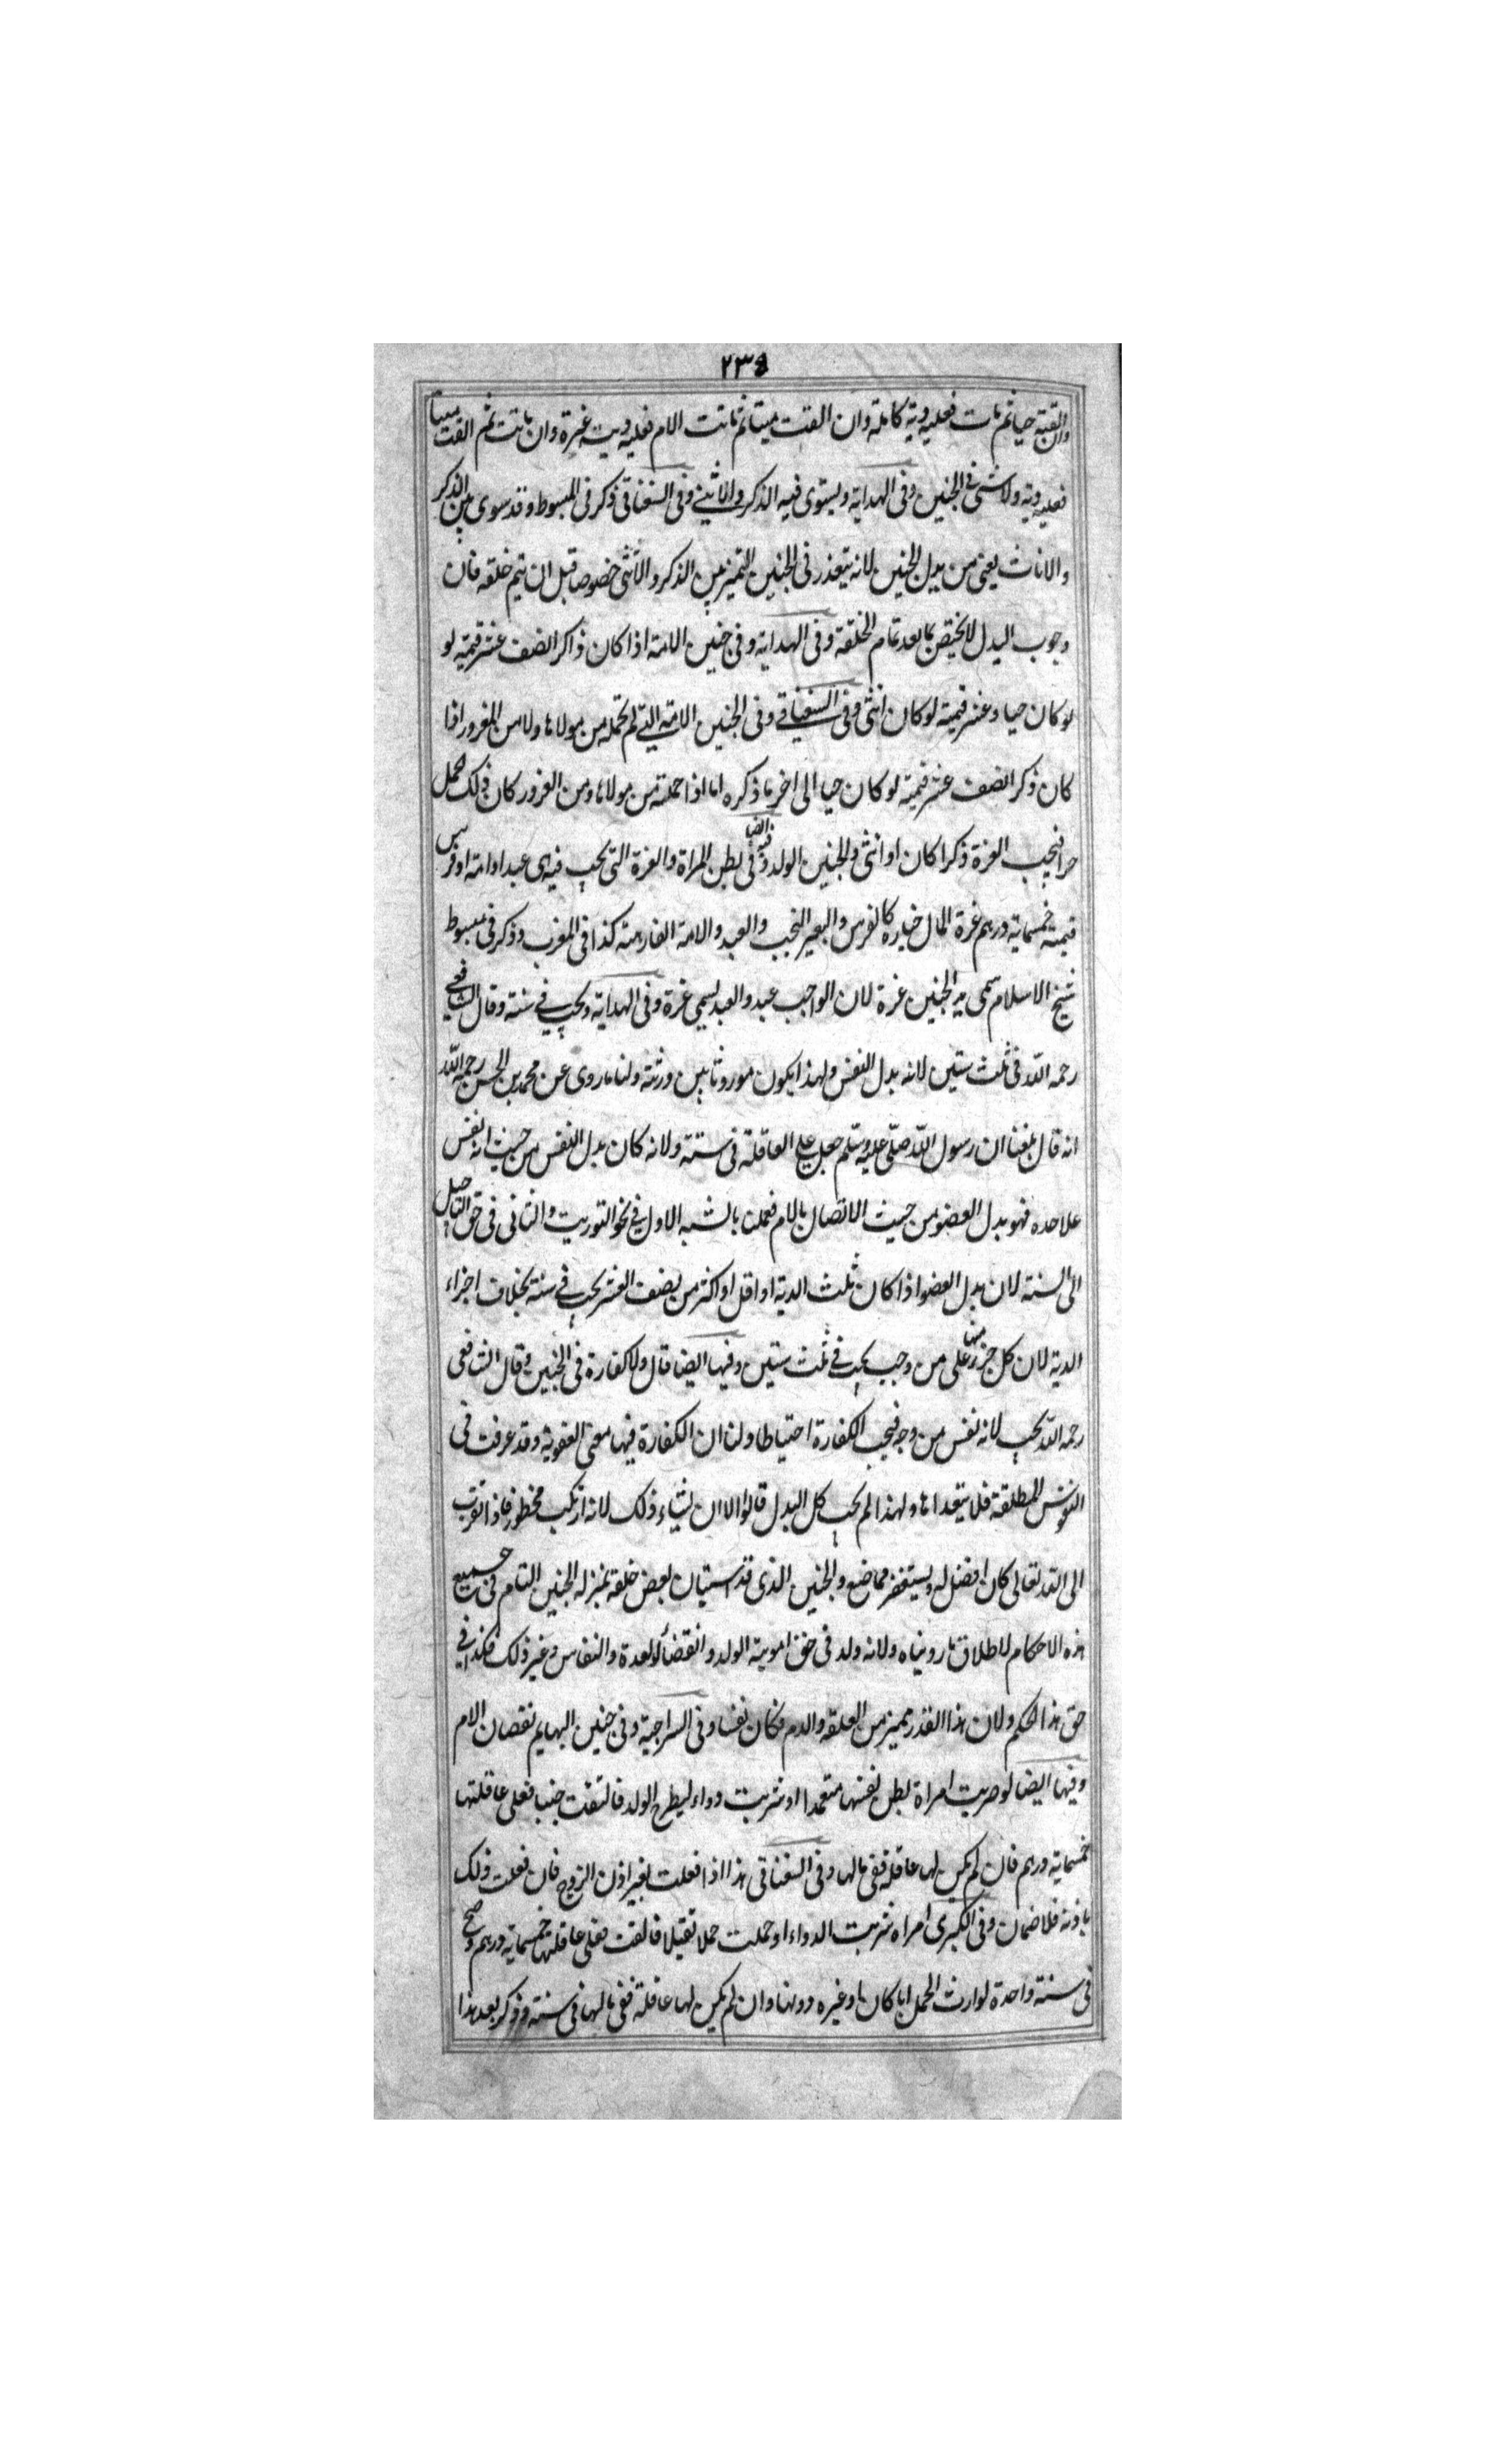 ٢٣٥
وان القته حيا ثم مات فعليه دية كاملة وان القت ميتا ثم ماتت الام فعليه دية غرة وان ماتت ثم القت ميتا
فعليه دية ولا شئ في الجنين وفى الهداية ويستوى فيه الذكر والانثى وفى السغناقى ذكر فى المبسوط وقد سوى بين الذكر
والاناث يعنى من بدل الجنين لانه يتعذر فى الجنين التميز بين الذكر والانثى خصوصا قبل ان يتم خلقه فان
وجوب البدل لا يختص بما بعد تمام الخلقة وفى الهداية وفى جنين الامة اذا كان ذاكرا نصف عشر قيمته لو
لو كان حيا وعشر قيمته لو كان انثى وفى السغناقى وفى الجنين الامة التى لم تحمله من مولاها ولا من المغرور اذا
كان ذكر انصف عشر قيمته لو كان حيا الى اخر ما ذكره اما اذا حملته من مولاها ومن الغرور كان ذلك الحمل
حرا فيجب الغرة ذكرا كان او انثى والجنين الولد فى بطن المراة والغرة التى يجب فيه اى عبد او امة او فرس
قيمته خمسماية درهم غرة المال خياره كالفرس والبعير النجيب والعبد والامة الفارهة كذا فى المغرب وذكر فى مبسوط
شيخ الاسلام سمى بدل الجنين غرة لان الواجب عبد والعبد يسمى غرة وفى الهداية ويجب فى سنة وقال الشافعى
رحمه الله فى ثلث سنين لانه بدل النفس ولهذا يكون موروثا بين ورثته ولنا ما روى عن محمد بن الحسن رحمه الله
انه قال بلغنا ان رسول الله صلى عليه وسلم جعل على العاقلة فى سنة ولانه كان بدل النفس من حيث انه نفس
علاحده فهو بدل العضو من حيث الاتصال بالام فعملنا بالشبه الاول فى نحو التوريث والثانى فى حق التاجيل
الى السنة لان بدل العضو اذا كان ثلث الدية او اقل او اكثر من نصف العشر يجب فى سنة بخلاف اجزاء
الدية لان كل جزء منها على من وجب يجب فى ثلث سنين وفيها ايضا قال ولا كفارة فى الجنين وقال الشافعى
رحمه الله يجب لانه نفس من وجه فيجب الكفارة احتياطا ولنا ان الكفارة فيها معنى العقوبة وقد عرفت فى
النفوس المطلقة فلا يتعداها ولهذا لم يجب كل البدل قالوا الا ان يشاء ذلك لانه ارتكب محظورا فاذا تقرب
الى الله تعالى كان افضل له ويستغفر مما صنع والجنين الذى قد استبان بعض خلقه بمنزلة الجنين التام فى جميع
هذه الاحكام لاطلاق ما روينا ولانه ولد فى حق امومية الولد وانقضاء العدة والنفاس وغير ذلك فكذا فى
حق هذا الحكم ولان هذا القدر يميز من العلقة والدم فكان نفسا وفى السراجية وفى جنين البهايم نقصان الام
وفيها ايضا لو ضربت امراة بطن نفسها متعمدا او شربت دواء ليطرح الولد فالقت جنينا فعلى عاقلتها
خمسماية درهم فان لم يكن لها عاقلة ففى مالها وفى السغناقى هذا اذا فعلت بغير اذن الزوج فان فعلت ذلك
باذنه فلا ضمان وفى الكبرى امراه شربت الدواء او حملت حملا ثقيلا فالقت فعلى عاقلتها خمسماية درهم
فى سنة واحدة لوارث الحمل ابا كان او غيره دونها وان لم يكن لها عاقلة ففى مالها فى سنة وذكر بعد هذا